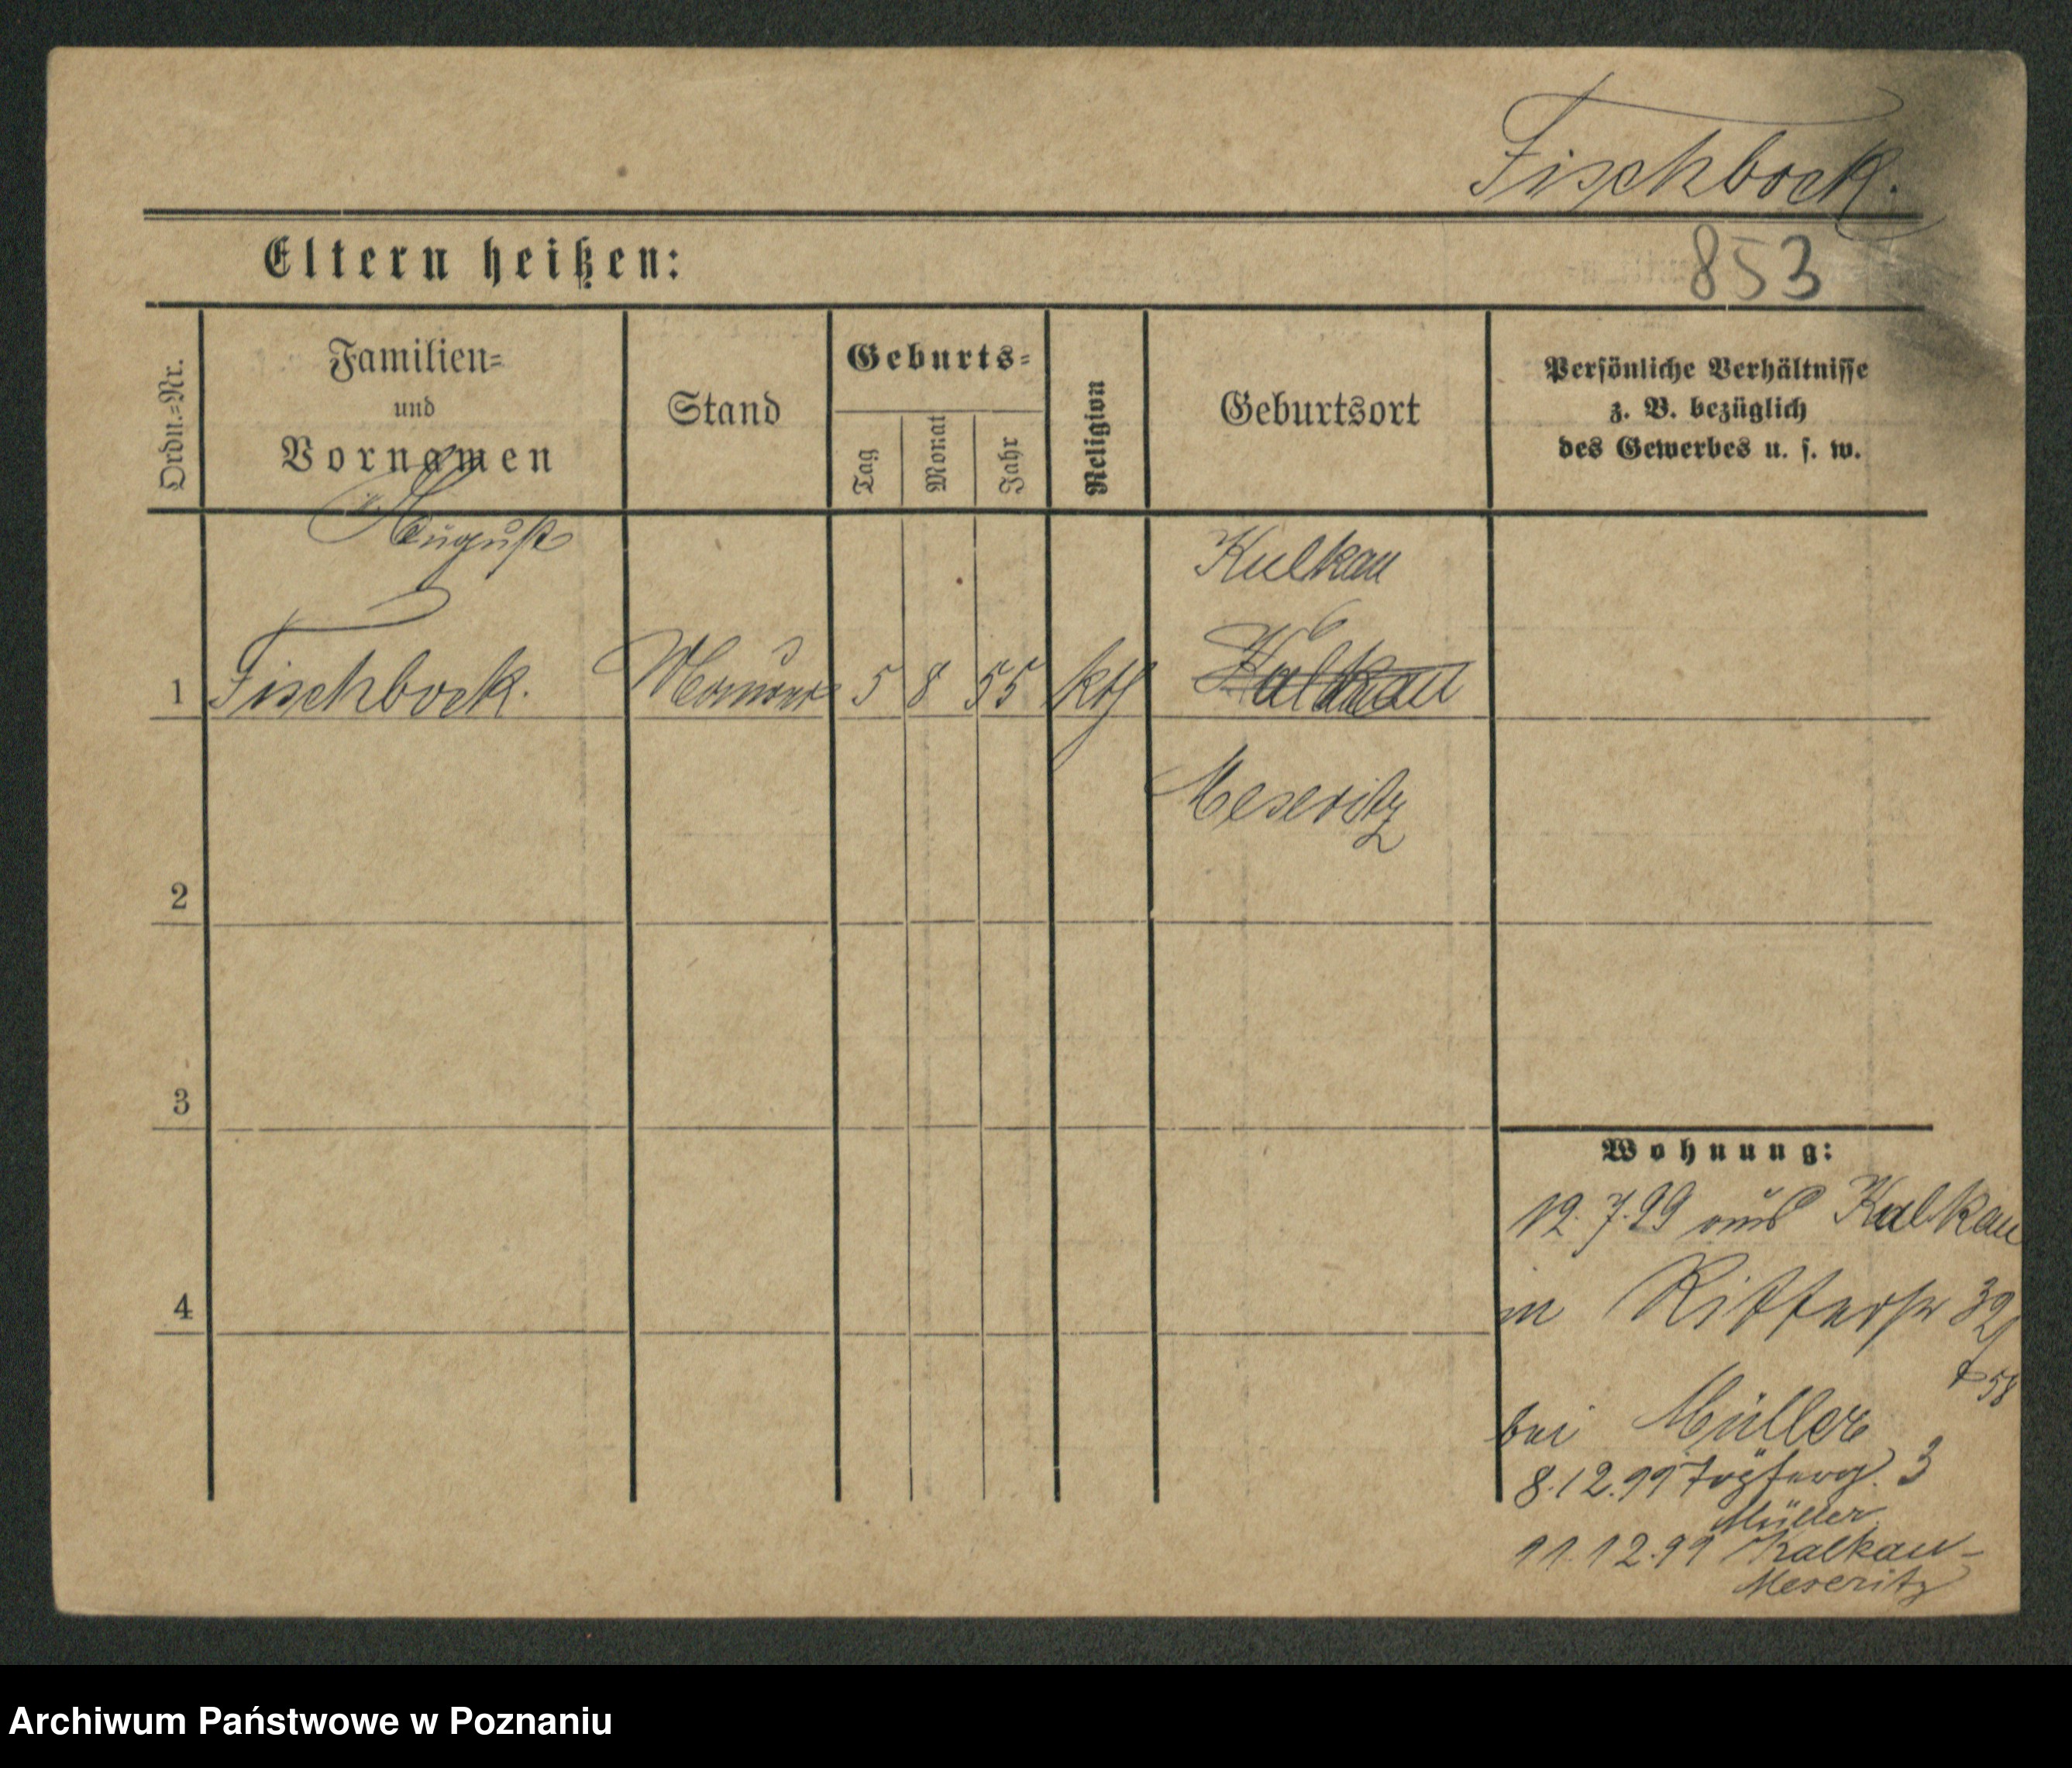 Fischbock.
Eltern heißen:
853
Ordn.=Nr.
Familien=
und
Vornamen
Stand
Geburts=
Tag
Monat
Jahr
Religion
Geburtsort
Persönliche Verhältnisse
z. B. bezüglich
des Gewerbes u. s. w.
August
Kulkau
1 Fischbock. Maurer 5 8 55 kth Kalkau
Meseritz
2
3
4
Wohnung:
12.7.99 aus Kalkau
in Ritterstr 39
bei Müller
8.12.99 3
Müller
11.12.99 Kalkau-
Meseritz
Archiwum Państwowe w Poznaniu